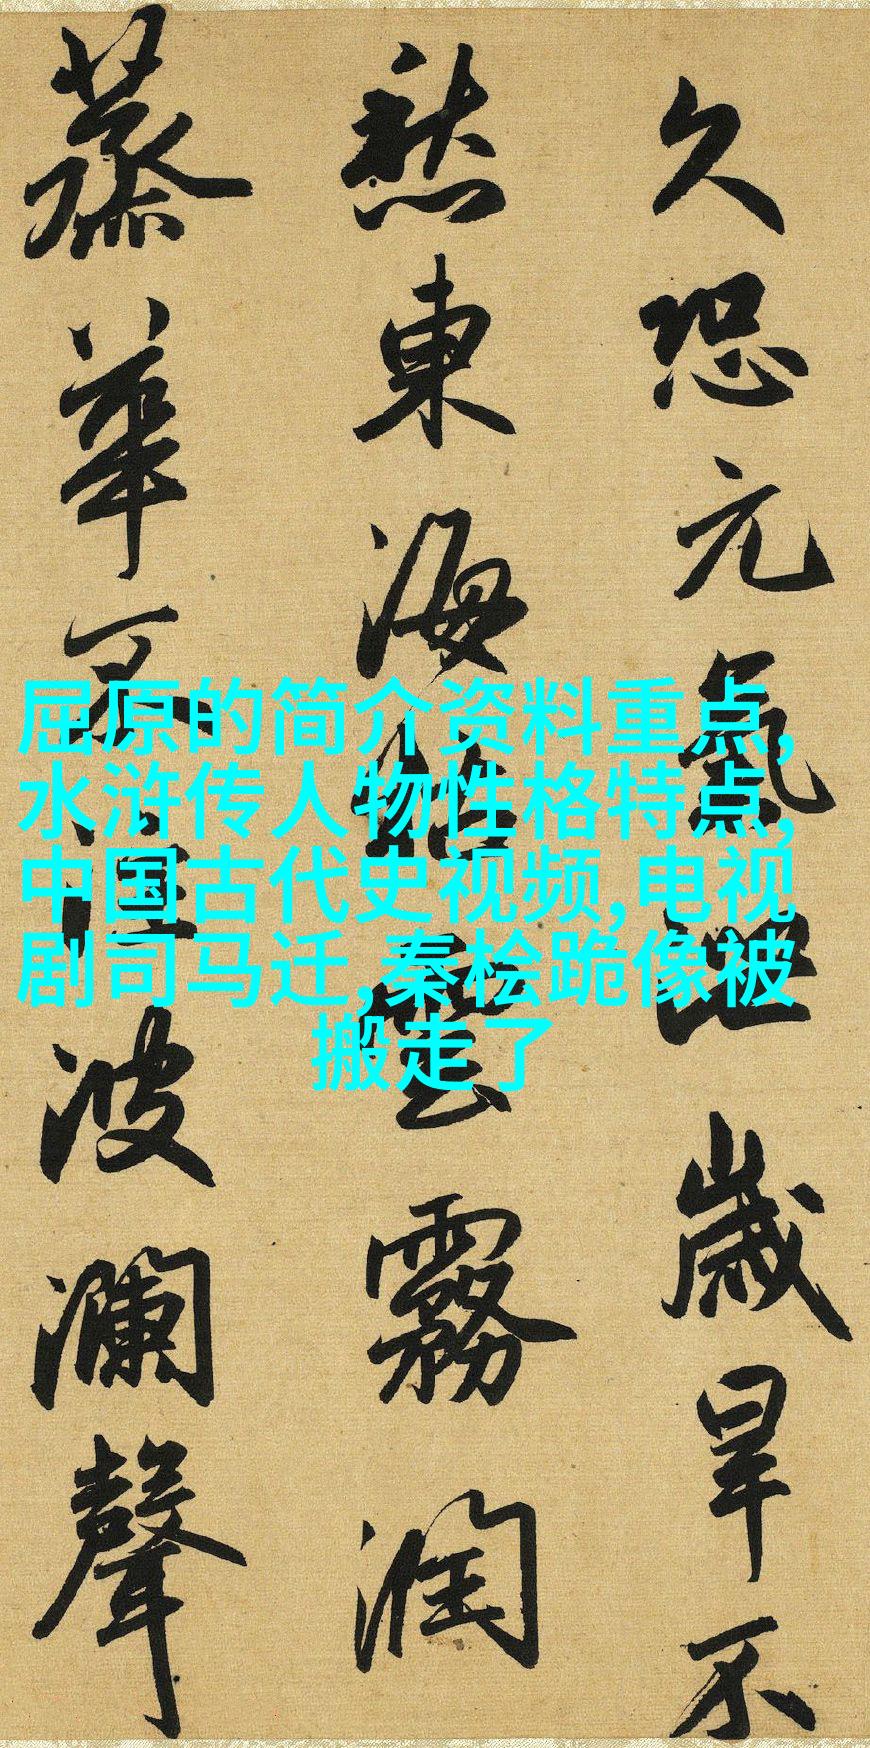 久恐元氣泄歲旱不
愁東海枯雲霧潤
蒸華不注波瀾聲
屈原的简介资料重点,
水浒传人物性格特点,
中国古代史视频,电视
剧司马迁,秦桧跪像被
搬走了